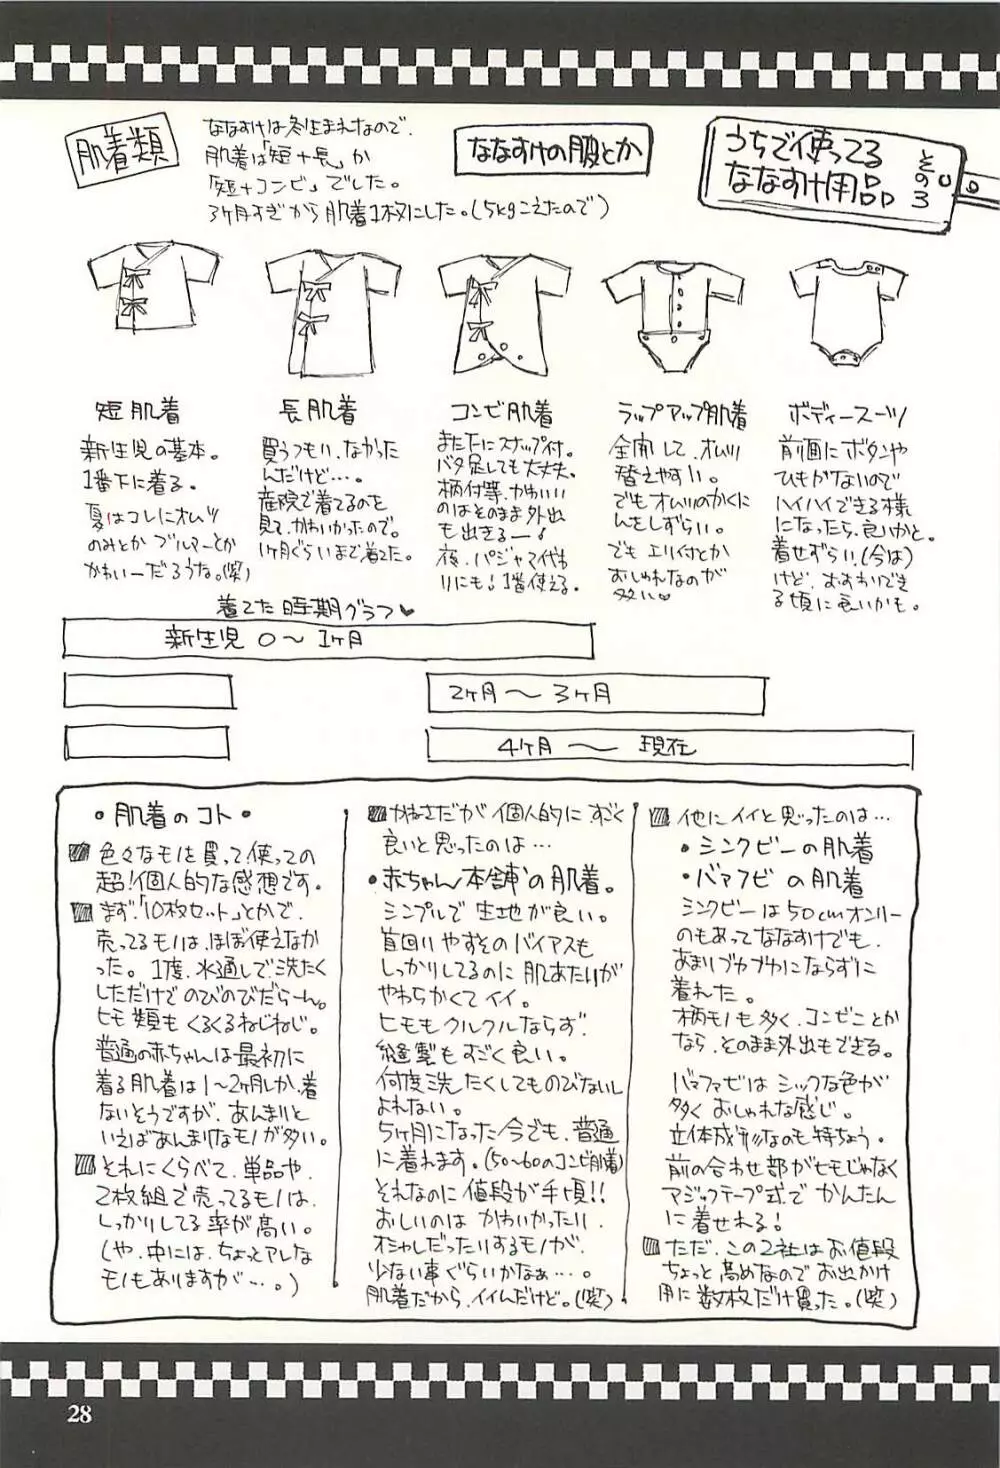 うちで使ってる
ななすけ用品
その3
ななすけの服とか
肌着類
ななすけは冬生まれなので、
肌着は「短+長」か
「短+コンビ」でした。
3ヶ月すぎから肌着1枚にした。(5kgこえたので)
短肌着
新生児の基本。
1番下に着る。
夏はコレにオムツ
のみとかブルマーとか
かわいーだろうな。(笑)
長肌着
買うつもりなかった
んだけど…。
産院で着てるのを
見て、かわいかったので。
1ヶ月ぐらいまで着てた。
コンビ肌着
また下にスナップ付。
バタ足しても大丈夫。
柄付等、かわいい
のはそのまま外出
も出きるー!
夜、パジャマ代わ
りにも!1番使える。
ラップアップ肌着
全開して、オムツ
替えやすい。
でもオムツのかくに
んをしずらい。
でもエリ付とか
おしゃれなのが
多い♥
ボディースーツ
前面にボタンや
ひもがないので
ハイハイできる様
になったら、良いかと。
着せずらい、(今は)
けど、おすわりでき
る頃に良いかも。
着てた時期グラフ♥
新生児 0〜1ヶ月
2ヶ月〜3ヶ月
4ヶ月〜現在
・肌着のコト・
色々なモノを買って使っての
超!個人的な感想です。
まず、「10枚セット」とかで、
売ってるモノは、ほぼ使えなか
った。1度、水通しで洗たく
しただけでのびのびだらーん。
ヒモ類もくるくるねじねじ。
普通の赤ちゃんは最初に
着る肌着は1〜2ヶ月しか、着
ないそうですが、あんまりと
いえばあんまりなモノが多い。
それにくらべて、単品や、
2枚組で売ってるモノは、
しっかりしてる率が高い。
(や、中には、ちょっとアレな
モノもありますが…。)
かねさだが個人的に、すごく
良いと思ったのは…
・赤ちゃん本舗の肌着。
シンプルで生地が良い。
首回りやすそのバイアスも
しっかりしてるのに肌あたりが
やわらかくてイイ。
ヒモもクルクルならず、
縫製もすごく良い。
何度洗たくしてものびないし
よれない。
5ヶ月になった今でも、普通
に着れます。(50〜60のコンビ肌着)
それなのに値段が手頃!!
おしいのはかわいかったり、
オシャレだったりするモノが、
少ない事ぐらいかなぁ…。
肌着だから、イイんだけど。(笑)
他にイイと思ったのは…
・シンクビーの肌着
・バアフビの肌着
シンクビーは50cmオンリー
のもあってななすけでも、
あまりブカブカにならずに
着れた。
柄モノも多く、コンビことか
なら、そのまま外出もできる。
バァファビはシックな色が
多くおしゃれな感じ。
立体成形なのも特ちょう。
前の合わせ部がヒモじゃなく
マジックテープ式でかんたん
に着せれる!
ただ、この2社はお値段
ちょっと高めなのでお出かけ
用に数枚だけ買った。(笑)
28